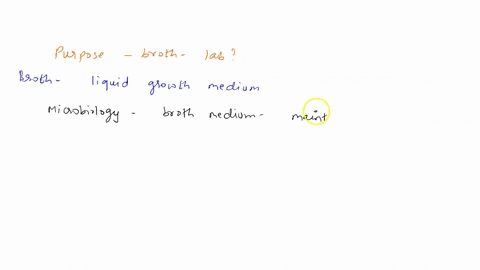 Purpose - broth - lab?
Broth - liquid growth medium
Microbiology - broth medium - maint